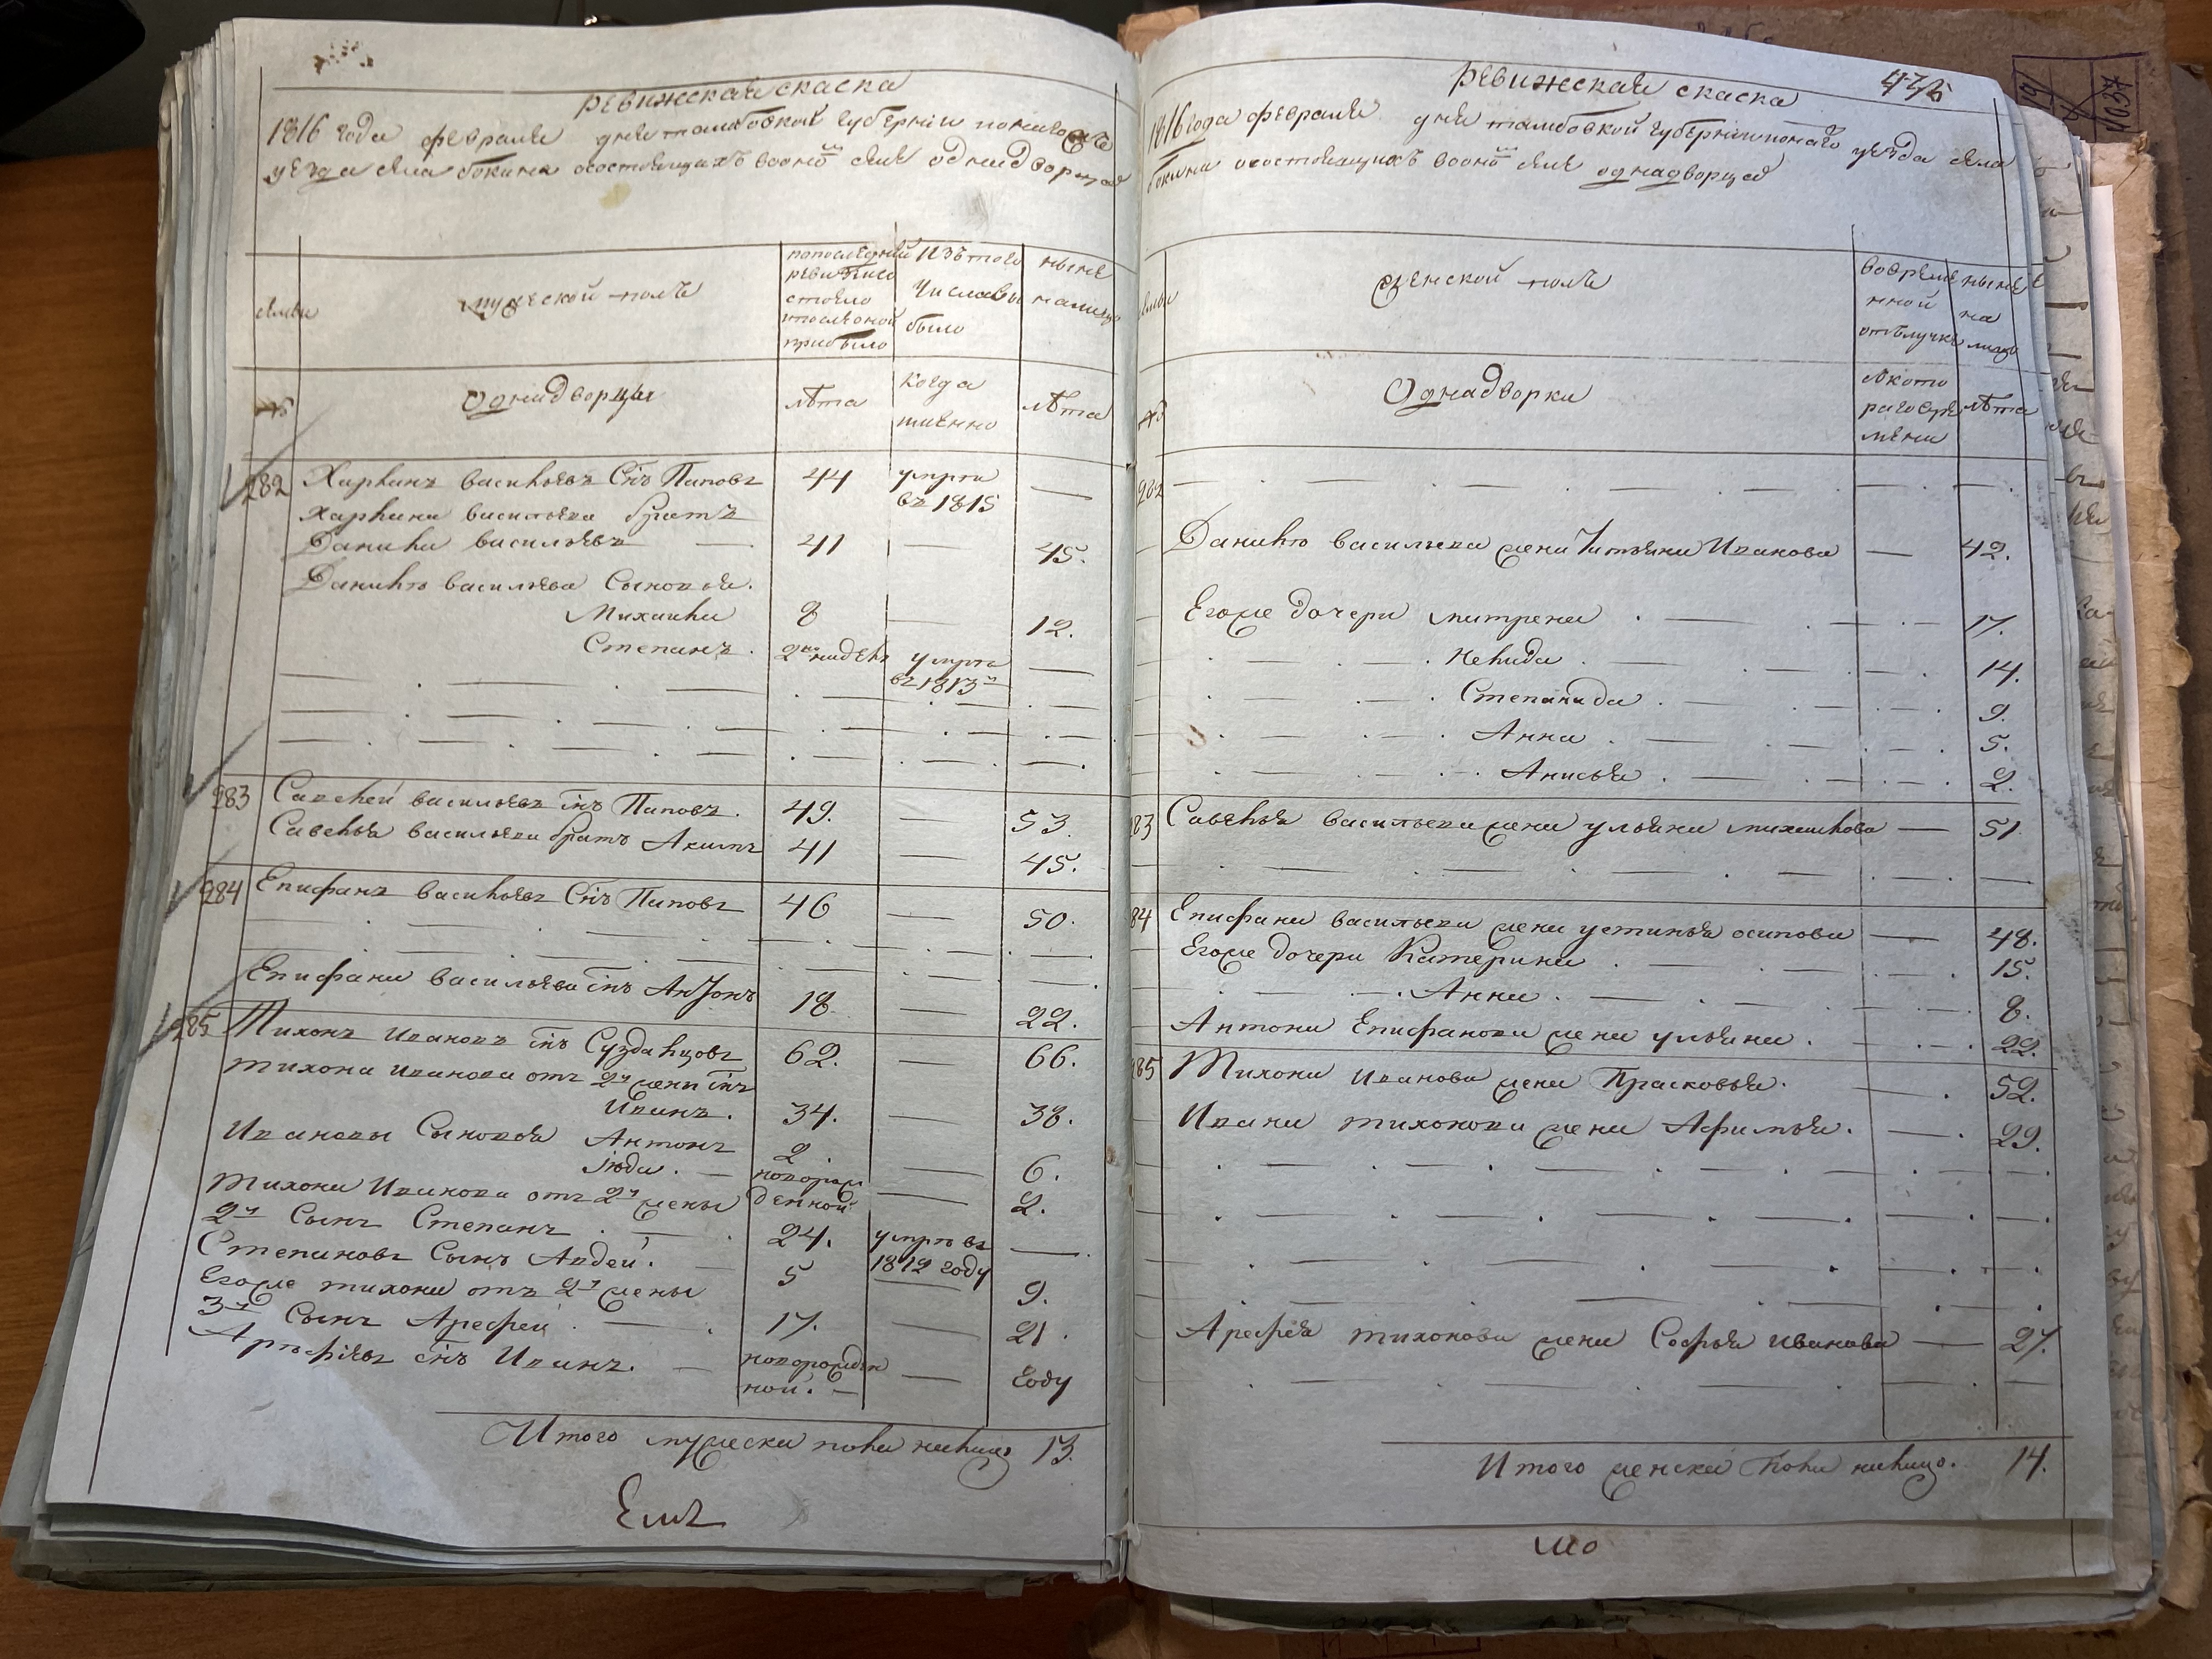 ревижская скаска
1816 года февраля дня тамбовской губернии
уезда села бокина состоящихъ во оном селе однадворцах
семьи
мужеской полъ
по последней
ревизии со
стояло
и после оной
прибыло
изъ того
числа вы
было
ныне
налицо
Однадворцы
лѣта
когда
имянно
лѣта
282 Харланъ васильевъ Снъ Паповъ 44 умре в 1815 —
Харлана васильева братъ
Данила васильевъ — 41 — 45.
Данилы васильева Сыновья.
Михаила 8 — 12.
Степанъ. умре —
в 1813
283 Савелей васильевъ снъ Паповъ. 49. — 53
Савелья васильева братъ Акимъ 41 — 45.
284 Епифанъ васильевъ Снъ Паповъ 46 — 50.
Епифана васильева снъ Антонъ 18 — 22.
285 Тихонъ Ивановъ снъ Суздальцовъ 62. — 66.
тихона иванова отъ 2й жены снъ
Иванъ. 34. — 38.
Ивановы Сыновья Антонъ 2 — 6.
Июда. — новорожденной — 2.
тихона Иванова отъ 2й жены
2й Сынъ Степанъ 24. умре въ 1812 году —
Степановъ Сынъ Авдей. — 5 — 9.
Егоже тихона отъ 2й жены
3й Сынъ Арефей 17. — 21.
Арефиевъ снъ Иванъ. — новорожденной. — году
Итого мужеска пола налицо 13.
Ему
ревижская скаска
475
1816 года февраля дня тамбовской губернии уезда села
бокина состоящихъ во оном селе однадворцах
семьи
женской полъ
во време
нной
отълучке
ныне
на
лицо
Однадворки
с кото
раго вре
мени
лѣта
282
Данилы васильева жена Татьяна Иванова — 42.
Егоже дочери матрена 17.
Нелида 14.
Степанида 9.
Анна 5.
Анисья 2.
83 Савелья васильева жена ульяна михаилова — 51
84 Епифана васильева жена устинья осипова — 48.
Егоже дочери Катерина 15.
Анна 8.
Антона Епифанова жена ульяна 22.
285 Тихона Иванова жена Прасковья 52.
Ивана тихонова жена Афимья 29.
Арефья тихонова жена Софья иванова — 27.
Итого женска пола налицо. 14.
мо
19
1037